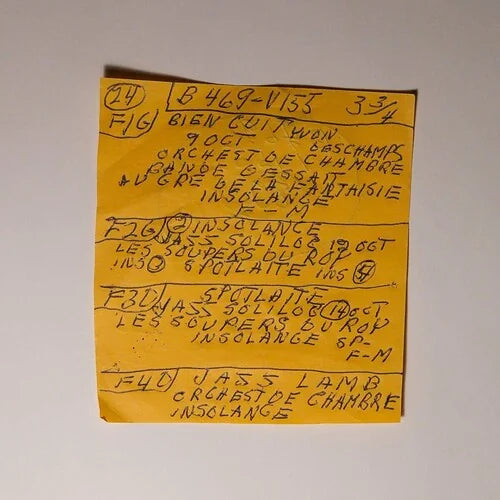 24 B 469-V155 3 3/4
F1G BIEN CUIT WON
9 OCT DESCHAMPS
ORCHEST DE CHAMBRE
BANDE DESSAIT
AU GRE DE LA FANTAISIE
INSOLANGE
F-M
F2G INSOLANCE
JASS SOLILOC 19 OCT
LES SOUPERS DU ROY
INS SPOTLAITE INS
F3D SPOTLAITE
JASS SOLILOC 14 OCT
LES SOUPERS DU ROY
INSOLANGE SP-
F-M
F4D JASS LAMB
ORCHEST DE CHAMBRE
INSOLANGE